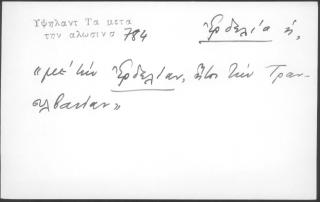 Υψηλαντ Τα μετα
την αλωσιν σ 784
Ἐρδελία ἡ,
«μετ' τὴν Ἐρδελίαν, ἤτοι τὴν Τραν-
συλβανίαν»